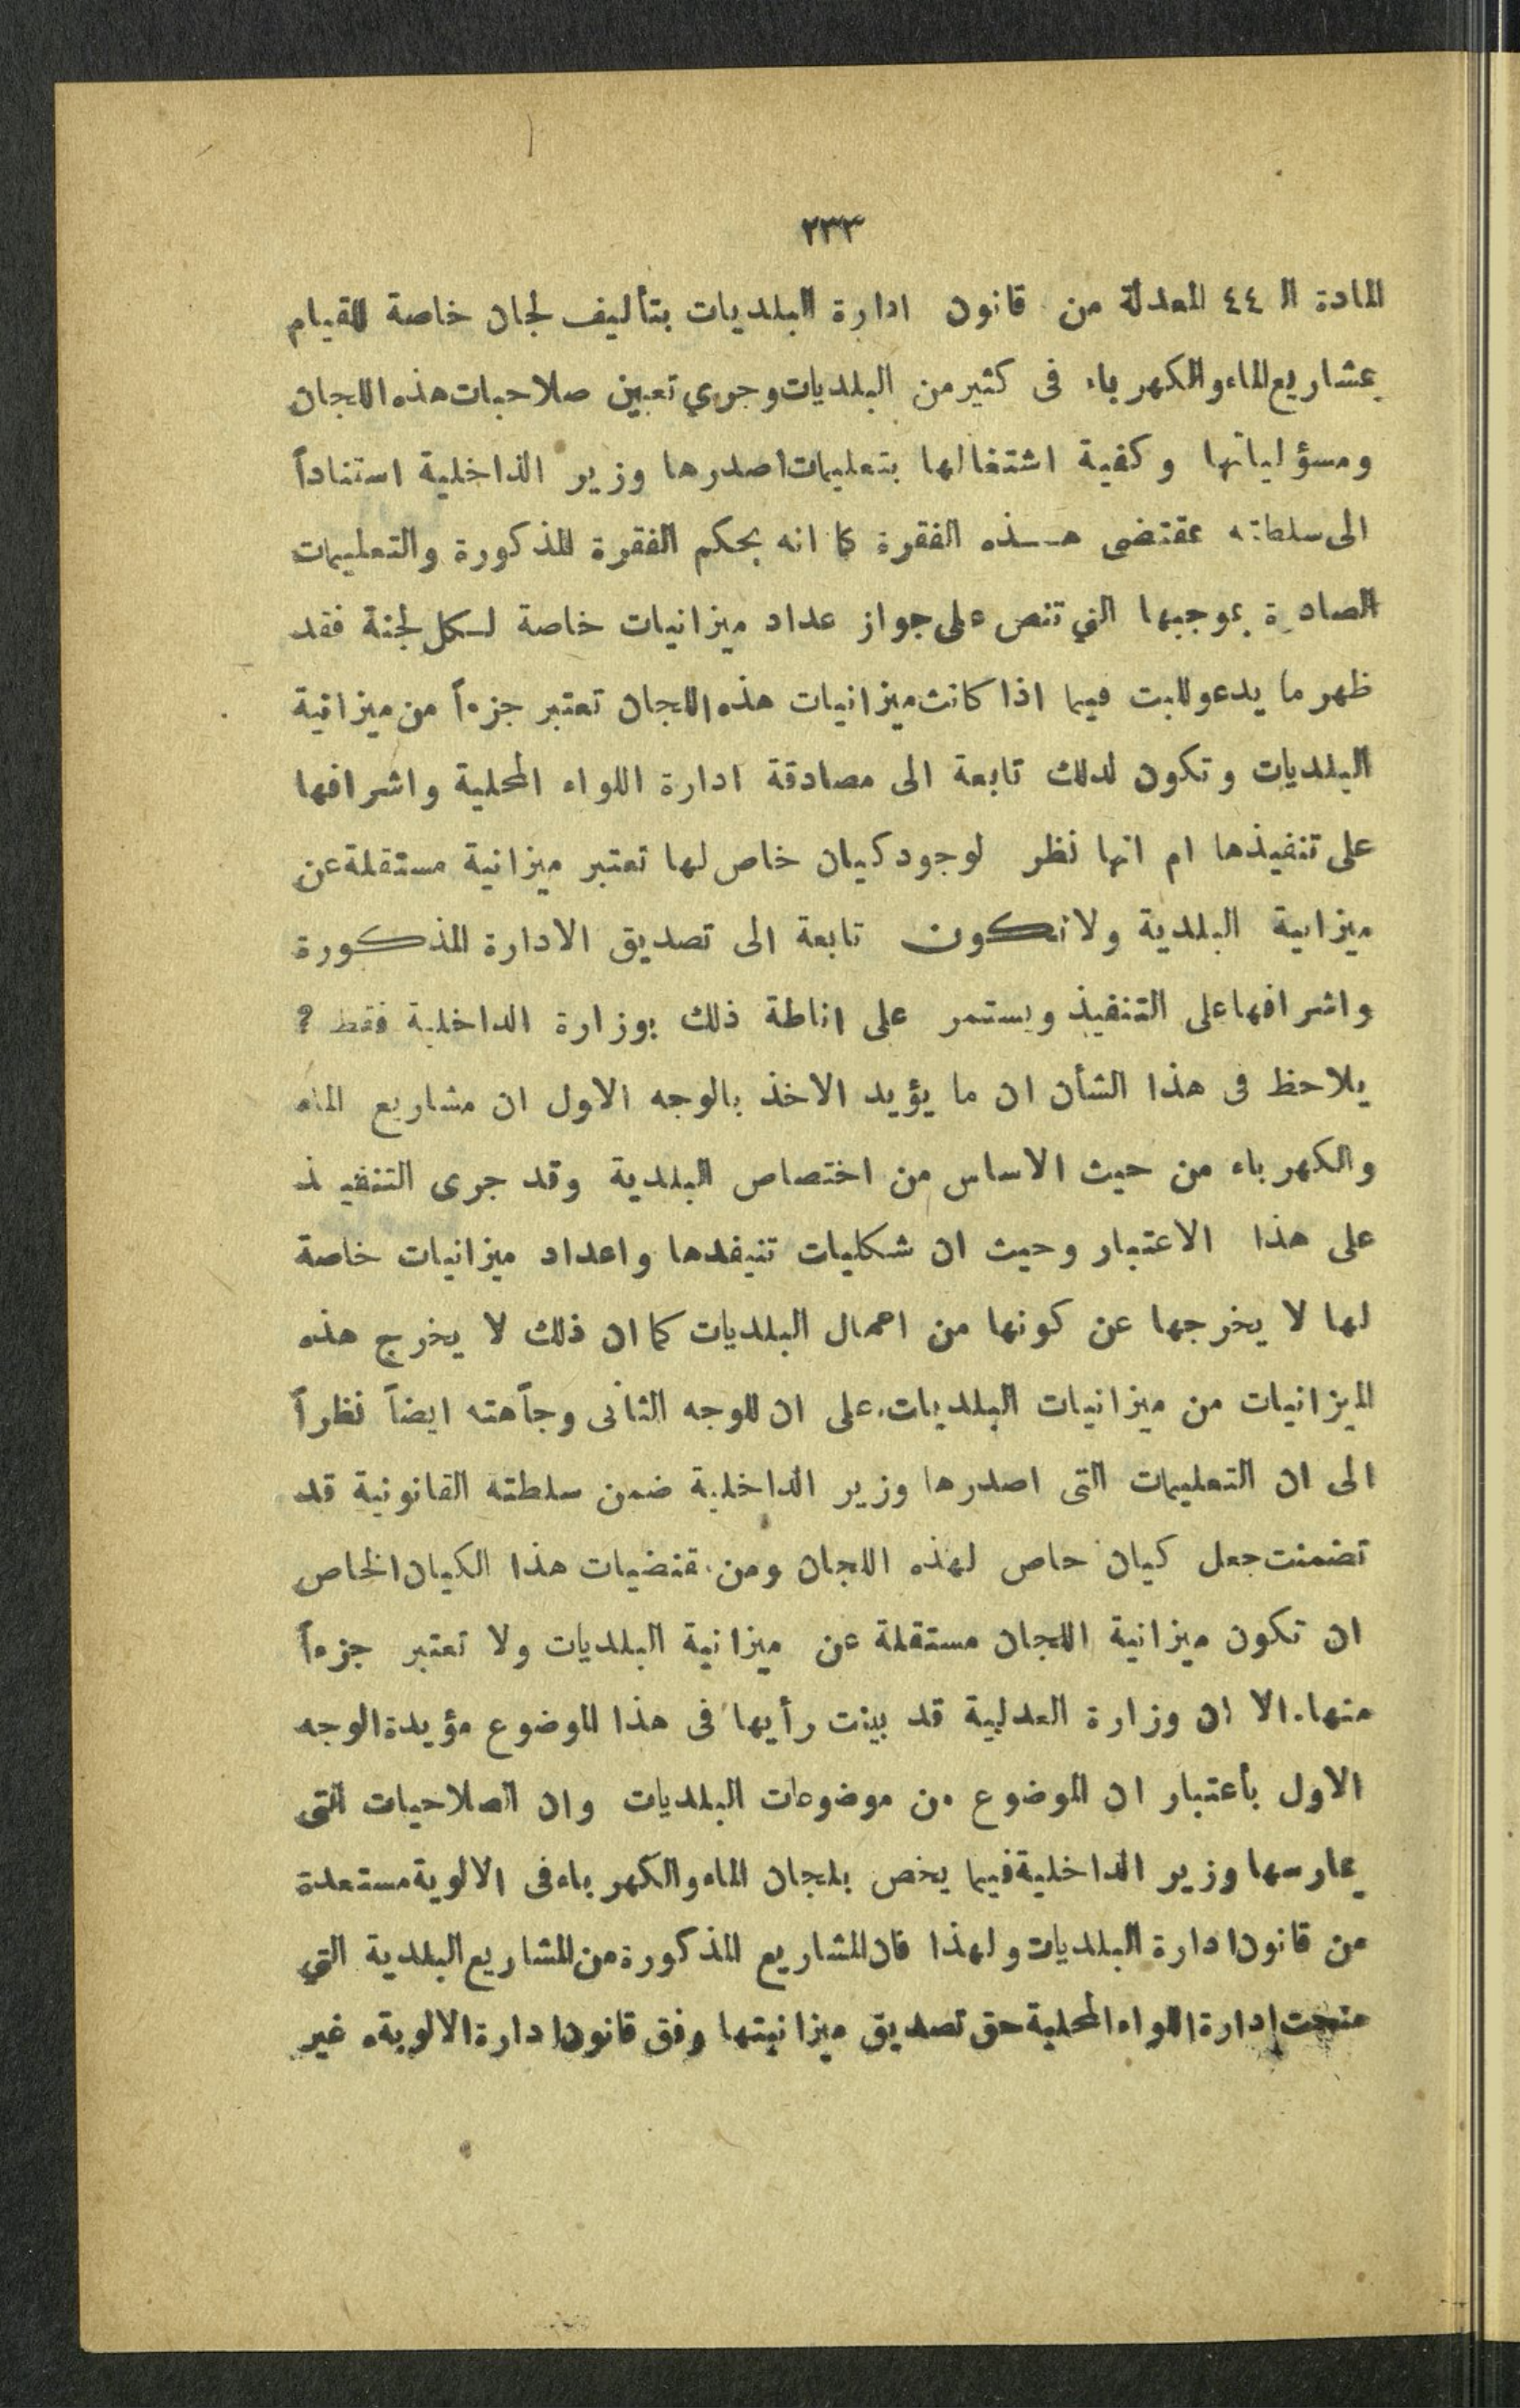 ٢٣٣
المادة الـ ٤٤ المعدلة من قانون ادارة البلديات بتأليف لجان خاصة للقيام
بمشاريع الماء والكهرباء في كثير من البلديات وجري تعيين صلاحيات هذه اللجان
ومسؤلياتها وكفية اشتغالها بتعليمات اصدرها وزير الداخلية استناداً
الى سلطاته بمقتضى هـذه الفقرة كما انه بحكم الفقرة المذكورة والتعليمات
الصادرة بموجبها التي تنص على جواز عداد ميزانيات خاصة لـكل لجنة فقد
ظهر ما يدعو للبت فيما اذا كانت ميزانيات هذه اللجان تعتبر جزءاً من ميزانية
البلديات وتكون لدلك تابعة الى مصادقة ادارة اللواء المحلية واشرافها
على تنفيذها ام انها نظر لوجود كيان خاص لها تعتبر ميزانية مستقلة عن
ميزانية البلدية ولا تكون تابعة الى تصديق الادارة المذكورة
واشرافها على التنفيذ ويستمر على اناطة ذلك بوزارة الداخلية فقط ?
يلاحظ في هذا الشأن ان ما يؤيد الاخذ بالوجه الاول ان مشاريع الماء
والكهرباء من حيث الاساس من اختصاص البلدية وقد جرى التنفيذ
على هذا الاعتبار وحيث ان شكليات تنيفدها واعداد ميزانيات خاصة
لها لا يخرجها عن كونها من اعمال البلديات كما ان ذلك لا يخرج هذه
الميزانيات من ميزانيات البلديات. على ان للوجه الثانى وجآهته ايضاً نظراً
الى ان التعليمات التى اصدرها وزير الداخلية ضمن سلطته القانونية قد
تضمنت جعل كيان حاص لهذه اللجان ومن مقتضيات هذا الكيان الخاص
ان تكون ميزانية اللجان مستقلة عن ميزانية البلديات ولا تعتبر جزءاً
منها. الا ان وزارة العدلية قد بينت رأيها في هذا الموضوع مؤيدة الوجه
الاول بأعتبار ان الموضوع من موضوعات البلديات وان الصلاحيات التى
يمارسها وزير الداخلية فيما يخص بلجان الماء والكهرباء في الالوية مستعدة
من قانون ادارة البلديات ولهذا فان المشاريع المذكورة من المشاريع البلدية التي
منحت ادارة اللواء المحلية حق تصديق ميزانيتها وفق قانون ادارة الالوية. غير